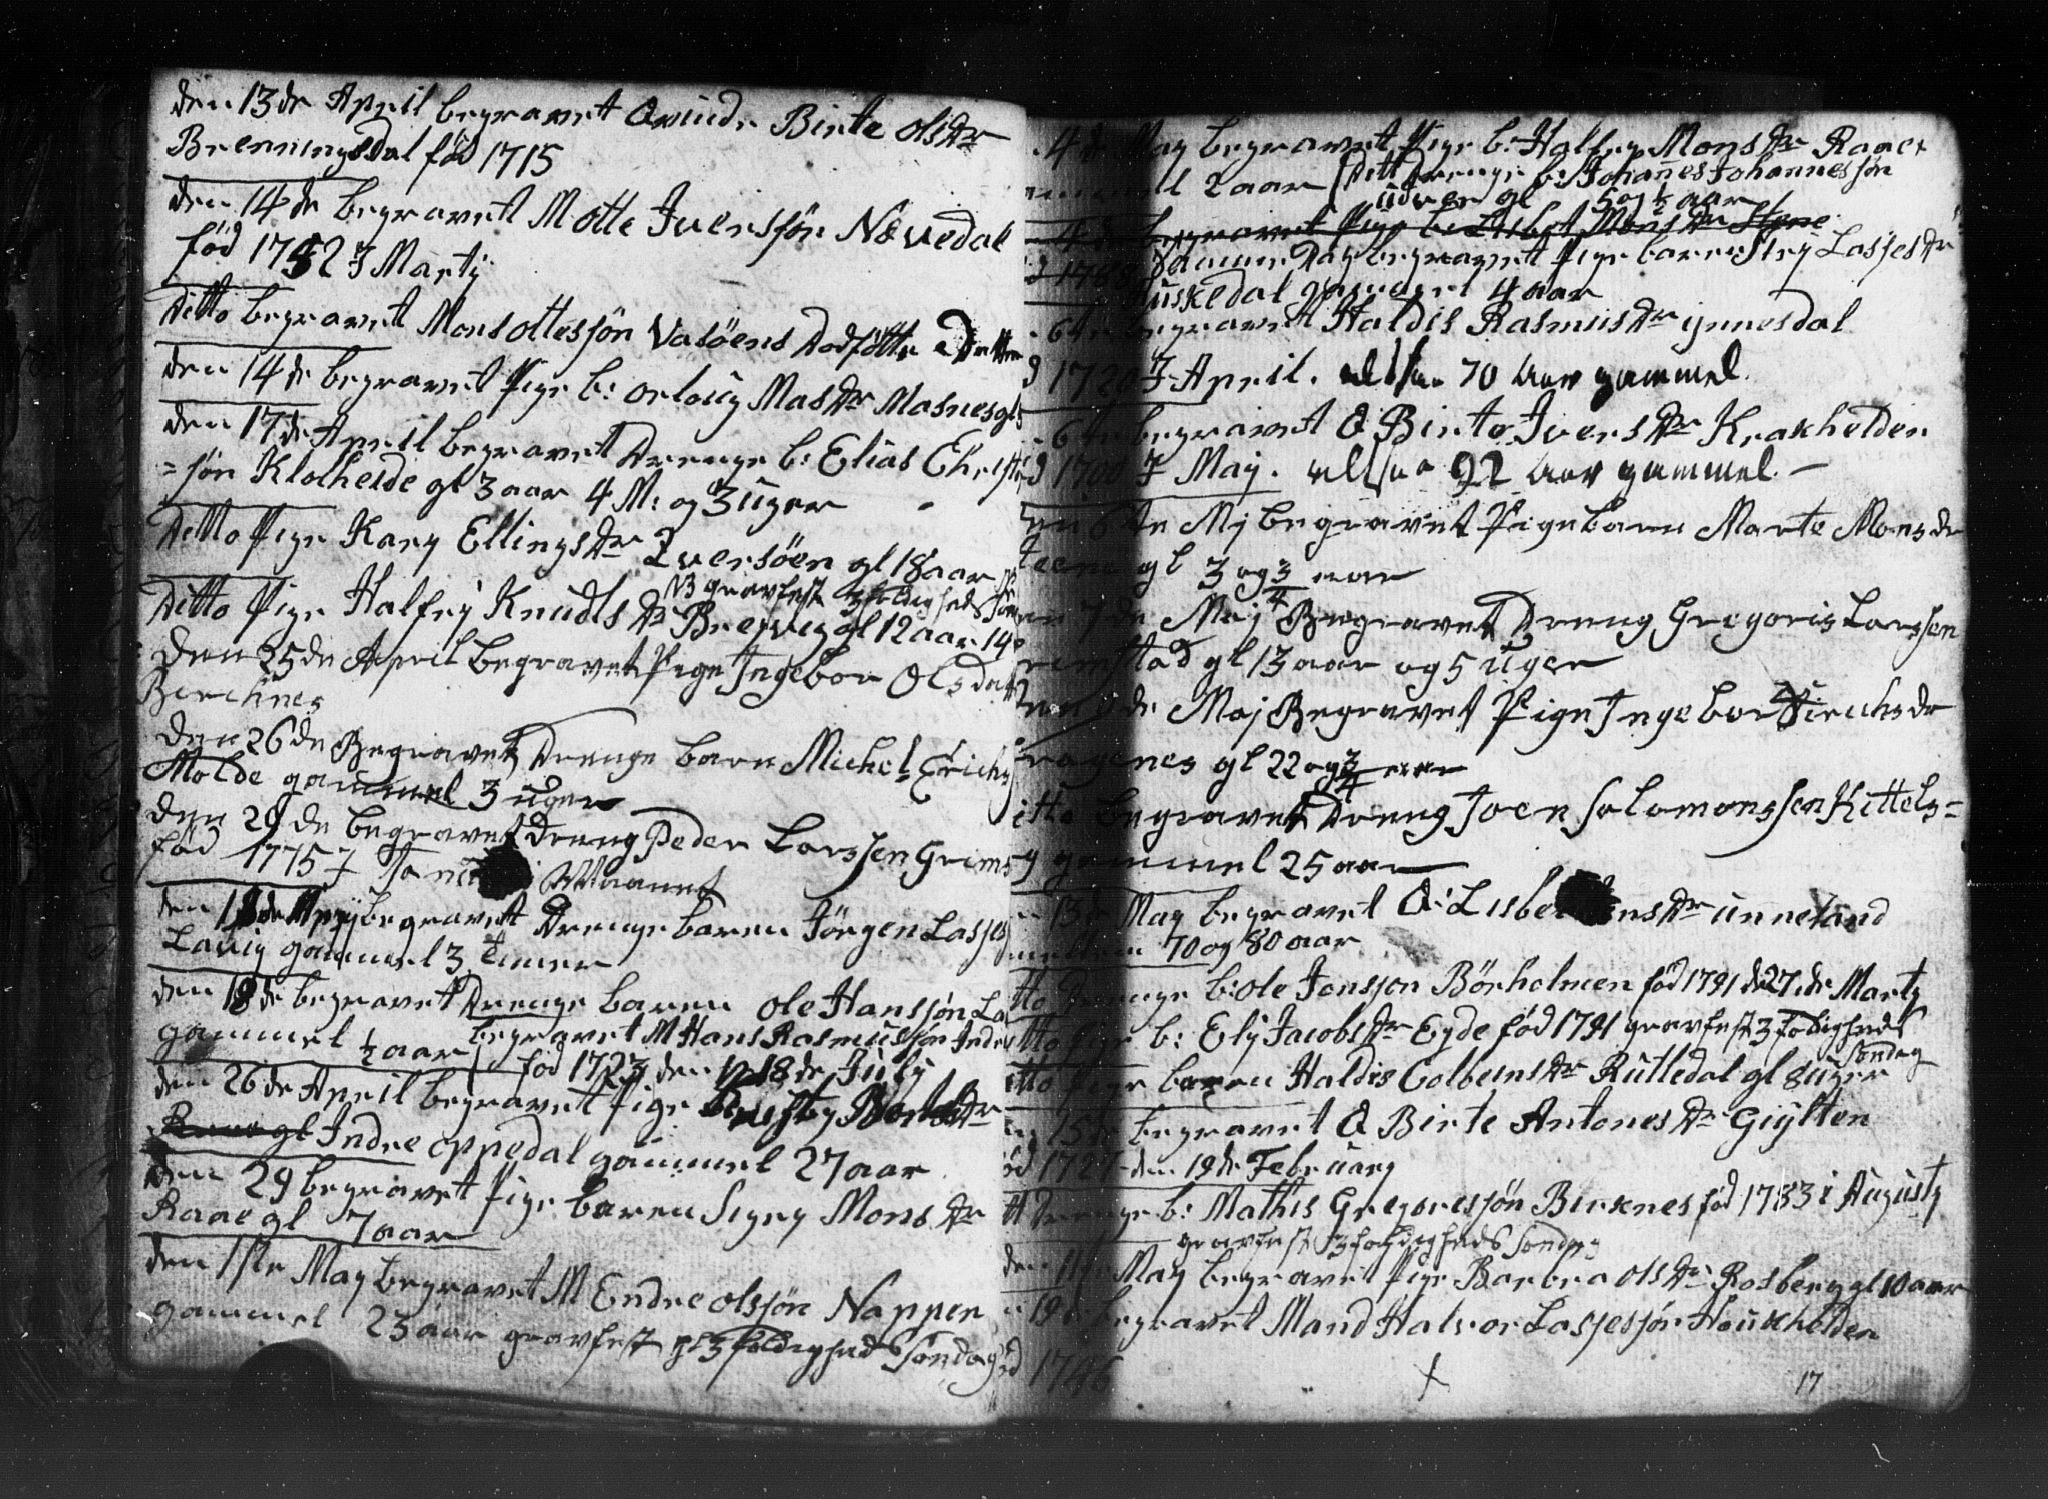 den 13de April begravet Qvinde Birte olsdr
Brenningsdal fød 1715
den 14de begravet Motte Iversøn Nævedal
fød 1752 J Martÿ
Ditto begravet Mons ottesøn Vasøens Dødføtte Datter
den 14de begravet Pige b: orloug Masdr Masnes gl
den 17de April begravet Drenge b: Elias Christ
=søn Klolheide gl 3 aar 4 M: og 3 uger
Ditto Pige Kary Ellingsdr Iversøen gl 18 aar
NB gravfest 3foldigheds Søn
Ditto Pige Halfrj Knudtsdr Brejvig gl 12 aar 14
Den 25de April begravet Pige Ingebor Olsdat
Berchnes
Den 26de Begravet Drenge barn Michel Erichs
Molde gammel 3 uger
den 29de begravet Dreng Peder Larssen Grims
fød 1775 J Maanet
den 18de begravet Drenge baren Jørgen Lasses
Lavig gammel 3 timer
den 18de begravet Drenge baren ole Hanssøn La
gammel ½ aar begravet M Hans Rasmussøn Indre
fød 1723 den 18de July
den 26de April begravet Pige
Indre oppedal gammel 27 aar
den 29 begravet Pige baren Signy Monsdr
Raae gl 7 aar
den 1ste May begravet M Endre olssøn Nappen
gammel 23 aar gravfest 3foldigheds Søndag
4de May begravet Pige b: Halfrj Monsdr Raae
2 aar Ditt Drenge b: Johannes Johannessøn
gl 5 og ½ aar
4de begravet Pige b: Lisbet Monsdr Stene
1788 Samme Dag begravet Pige baren Siry Lassesdr
gammel 4 aar
6te begravet Haldis Rasmusdr ynnesdal
J April. altsaa 70 aar gammel.
6te begravet Q Birte Iversdr Krakhelden
1700 J May. altsaa 92 aar gammel –
en 6te Mj begravet Pigebarn Marte Monsdr
gl 3 og 3/4 aar
7de Maj Begravet Dreng Gregoris Larssen
gl 13 aar og 5 uger
de Maj Begravet Pige Ingebor Dierichsdr
gl 22 og 3/4 aar
itto begravet Dreng Joen Salomonssen Kittels=
gammel 25 aar
13de May begravet Q: Lisbe nsdr unneland
mellem 70 og 80 aar
tto Drenge b: ole Jonssøn Børholmen fød 1791 d 27de Martÿ
tto Pige b: Elj Jacobsdr Eyde fød 1791 gravfest 3foldigheds
Søndag
itto Pige baren Haldis Colbensdr Rutledal gl 8 uger
15de begravet Q Birte Antonesdr Giÿlten
ød 1727 den 19de February
tt Drenge b: Mathis Gregoresøn Birknes fød 1783 i Augusty
gravfest 3foldigheds Søndag
den May begravet Pige Barbra olsdr Rosberg gl 10 aar
19de begravet Mand Halvor Lassessøn Houkhelden
1746
17